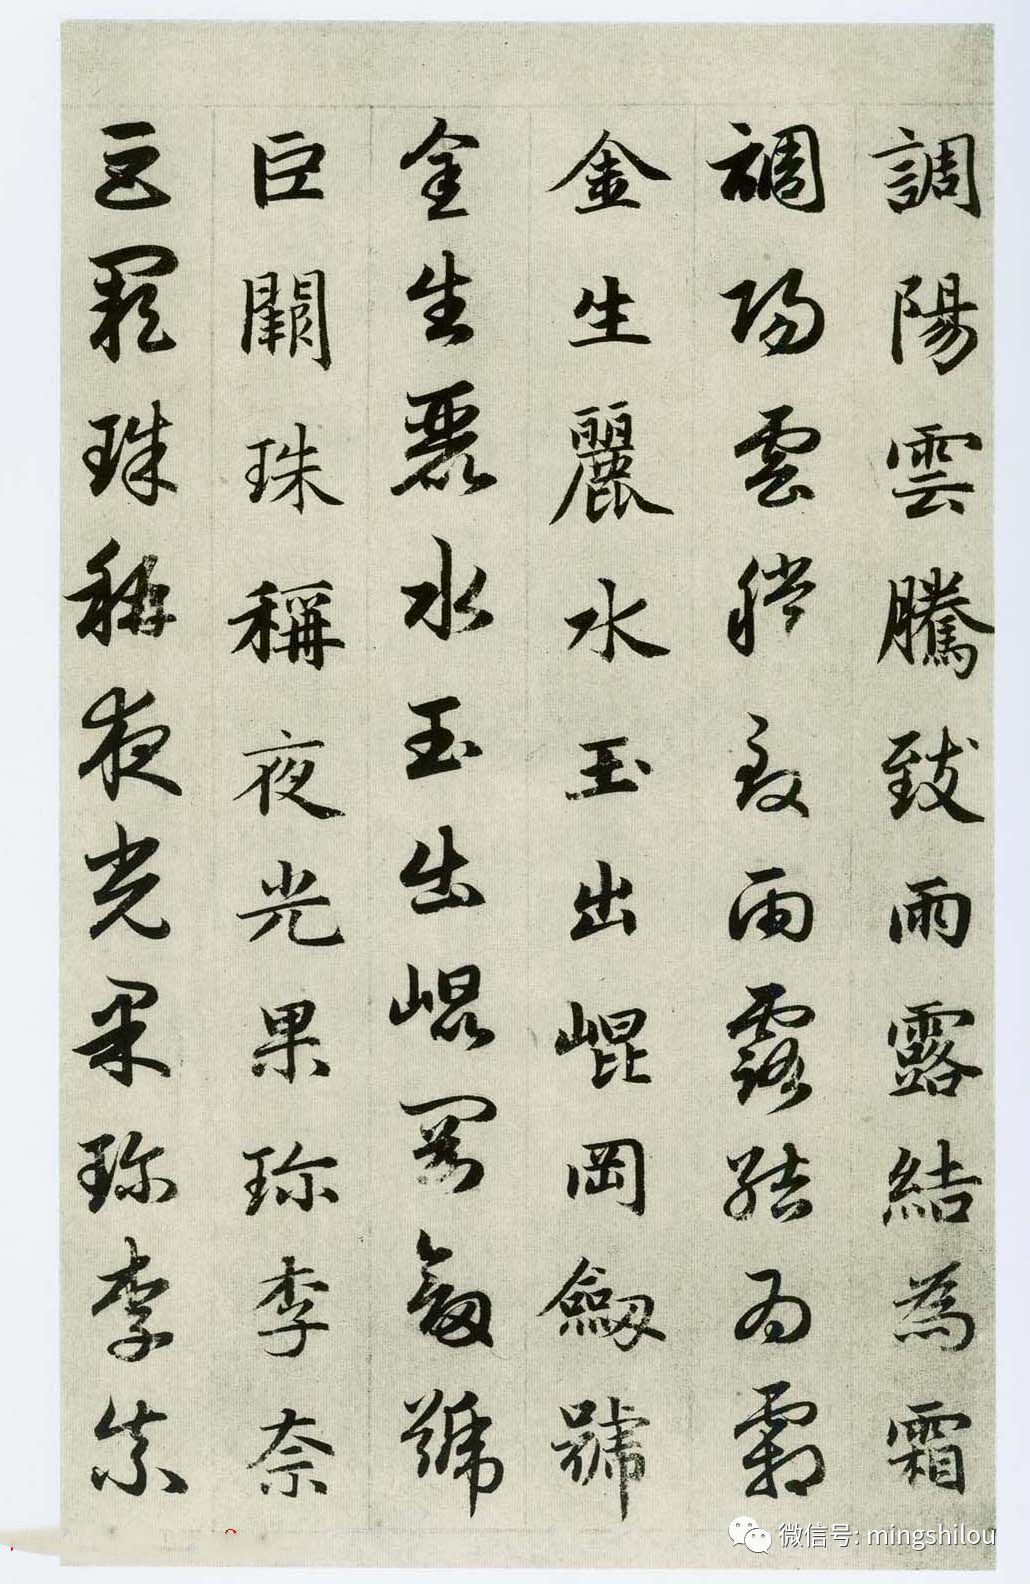 調陽雲騰致雨露結為霜
調陽雲騰致雨露結為霜
金生麗水玉出崐岡劒號
金生麗水玉出崐岡劒號
巨闕珠稱夜光果珎李奈
巨闕珠稱夜光果珎李柰
微信号: mingshilou